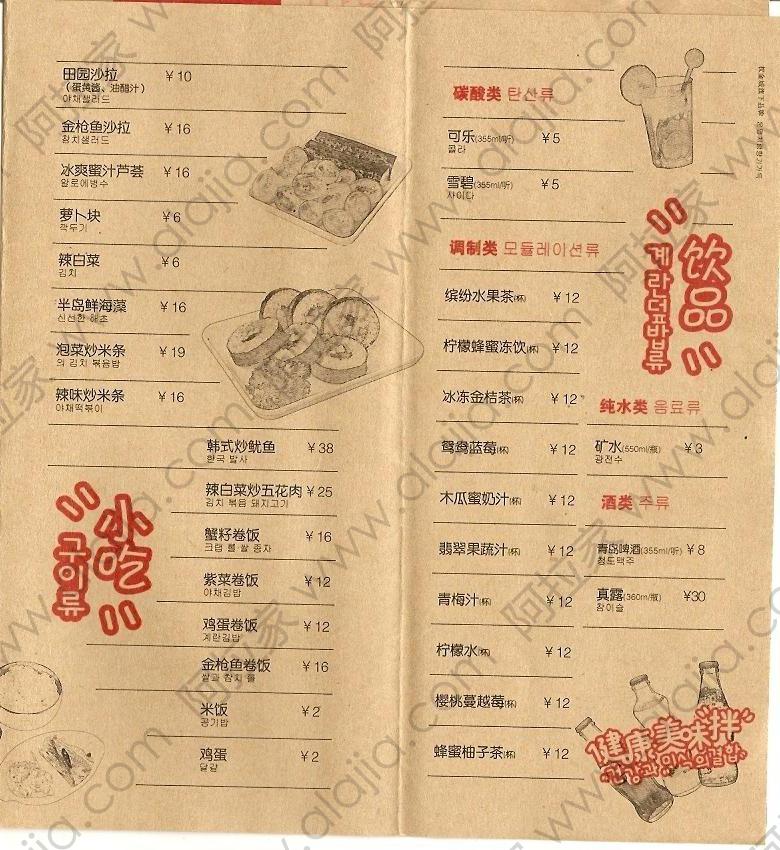 田园沙拉 ￥10
（蛋黄酱、油醋汁）
야채샐러드
金枪鱼沙拉 ￥16
참치샐러드
冰爽蜜汁芦荟 ￥16
알로에빙수
萝卜块 ￥6
깍두기
辣白菜 ￥6
김치
半岛鲜海藻 ￥16
신선한 해초
泡菜炒米条 ￥19
의 김치 볶음밥
辣味炒米条 ￥16
야채떡볶이
韩式炒鱿鱼 ￥38
한국 발사
辣白菜炒五花肉 ￥25
김치 볶음 돼지고기
蟹籽卷饭 ￥16
크랩 롤 쌀 종자
紫菜卷饭 ￥12
야채김밥
鸡蛋卷饭 ￥12
계란김밥
金枪鱼卷饭 ￥16
쌀과 참치 롤
米饭 ￥2
공기밥
鸡蛋 ￥2
달걀
小吃
구이류
碳酸类 탄산류
可乐(355ml/听) ￥5
콜라
雪碧(355ml/听) ￥5
사이다
调制类 모듈레이션류
缤纷水果茶(杯) ￥12
柠檬蜂蜜冻饮(杯) ￥12
冰冻金桔茶(杯) ￥12
鸳鸯蓝莓(杯) ￥12
木瓜蜜奶汁(杯) ￥12
翡翠果蔬汁(杯) ￥12
青梅汁(杯) ￥12
柠檬水(杯) ￥12
樱桃蔓越莓(杯) ￥12
蜂蜜柚子茶(杯) ￥12
饮品
纯水类 음료류
矿水(550ml/瓶) ￥3
광전수
酒类 주류
青岛啤酒(355ml/听) ￥8
청도맥주
真露(360m/瓶) ￥30
참이슬
健康美味拌
阿拉家 www.alajia.com